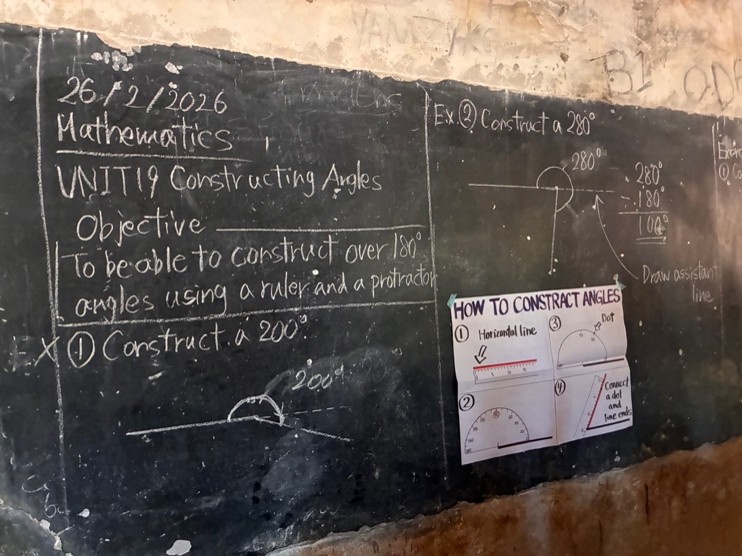 26/2/2026
Mathematics
UNIT19 Constructing Angles
Objective
To be able to construct over 180°
angles using a ruler and a protractor
EX ① Construct a 200°.
200°
Ex.② Construct a 280°
280°
280°
- 180°
100°
Draw assistant
line
HOW TO CONSTRACT ANGLES
① Horizontal line
②
③ Dot
④ Connect
a dot
and
line ends
B1
① Co